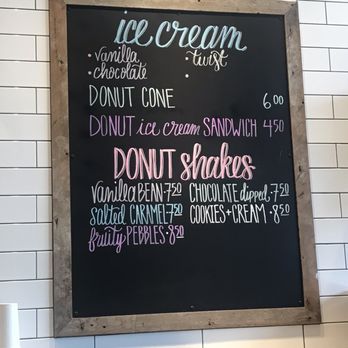 ice cream
• vanilla • twist
• chocolate
DONUT CONE 6.00
DONUT ice cream SANDWICH 4.50
DONUT shakes
vanilla BEAN • 7.50 CHOCOLATE dipped • 7.50
salted CARAMEL 7.50 COOKIES + CREAM • 8.50
fruity PEBBLES • 8.50